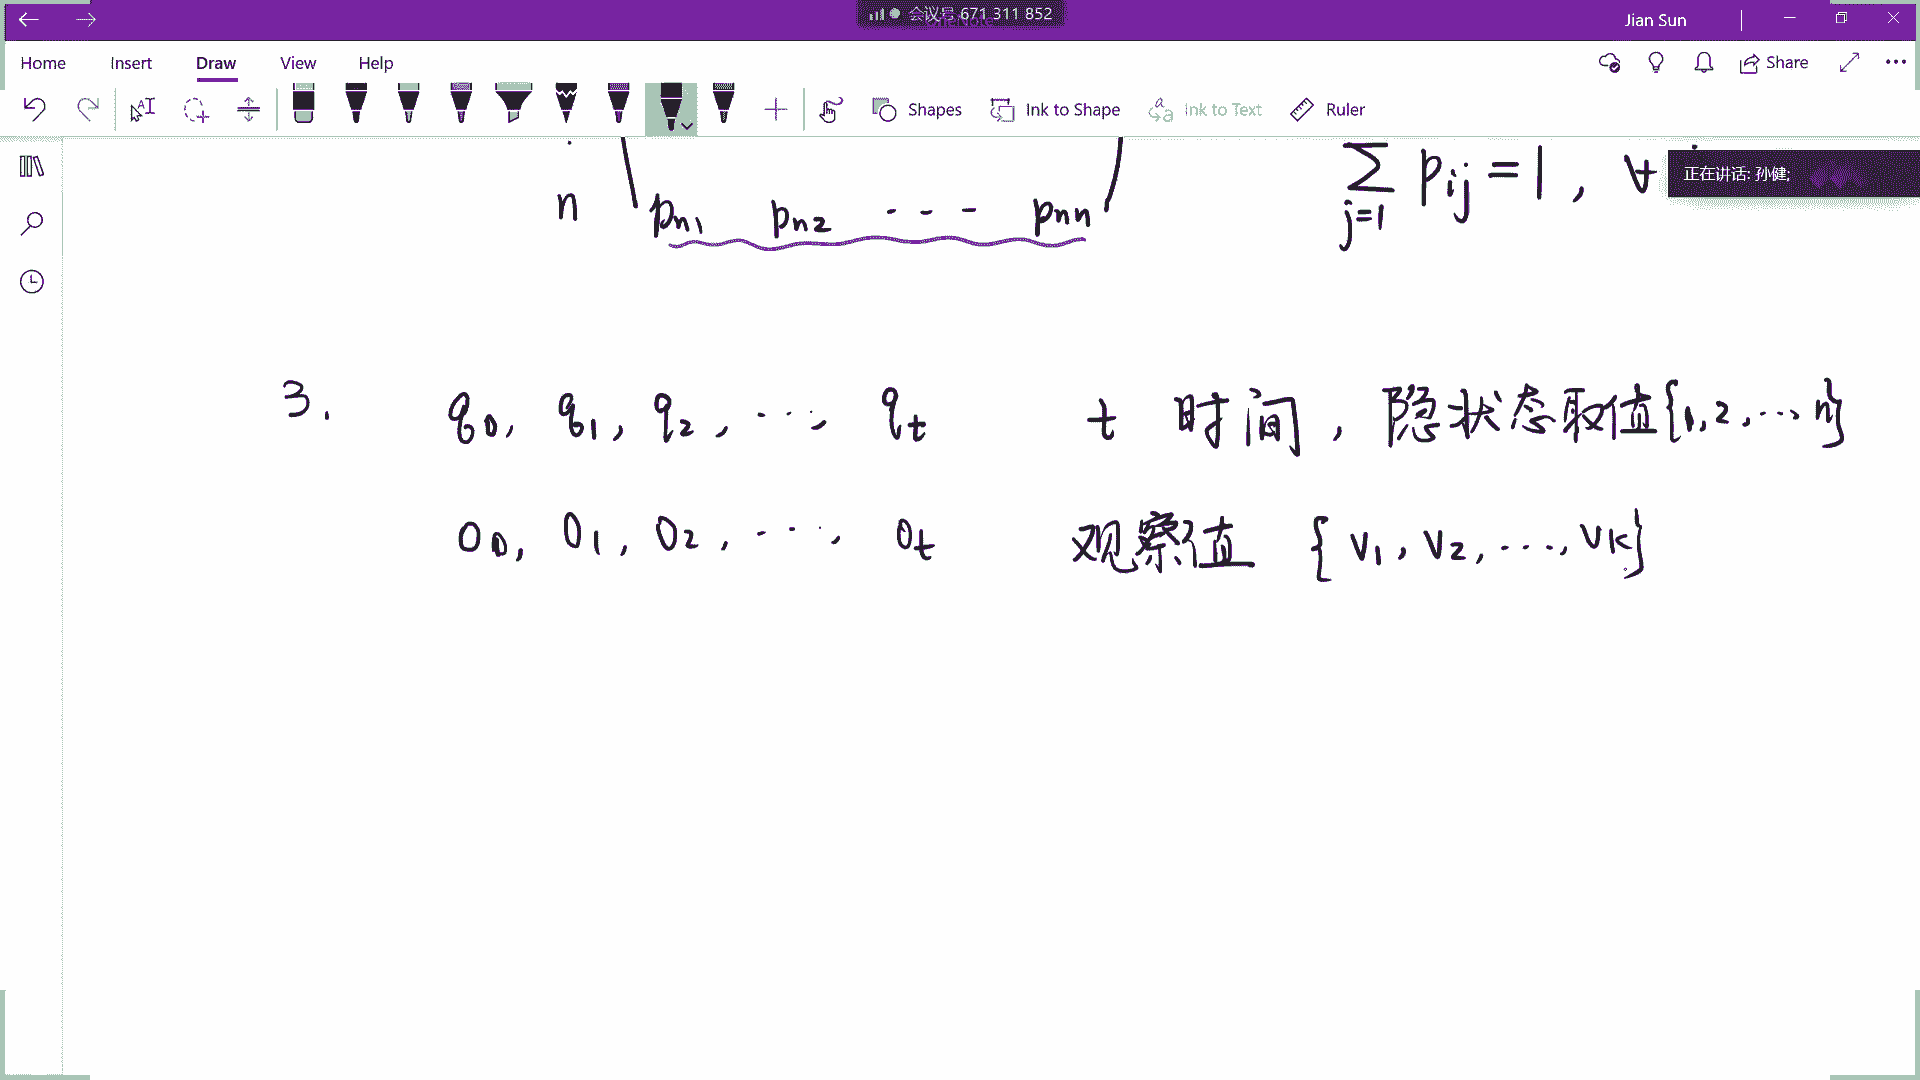 会议号 671 311 852
Jian Sun
Home Insert Draw View Help
Share
Shapes Ink to Shape Ink to Text Ruler
正在讲话: 孙健;
n p_{n1} p_{n2} --- p_{nn}
∑_{j=1} p_{ij} = 1 , ∀
3. q_0, q_1, q_2, ..., q_t t 时间, 隐状态取值{1,2,...,n}
o_0, o_1, o_2, ..., o_t 观察值 {v_1, v_2, ..., v_k}